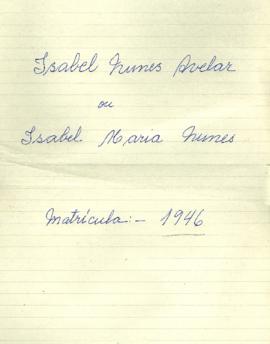 Isabel Nunes Avelar
ou
Isabel Maria Nunes
Matrícula:- 1946